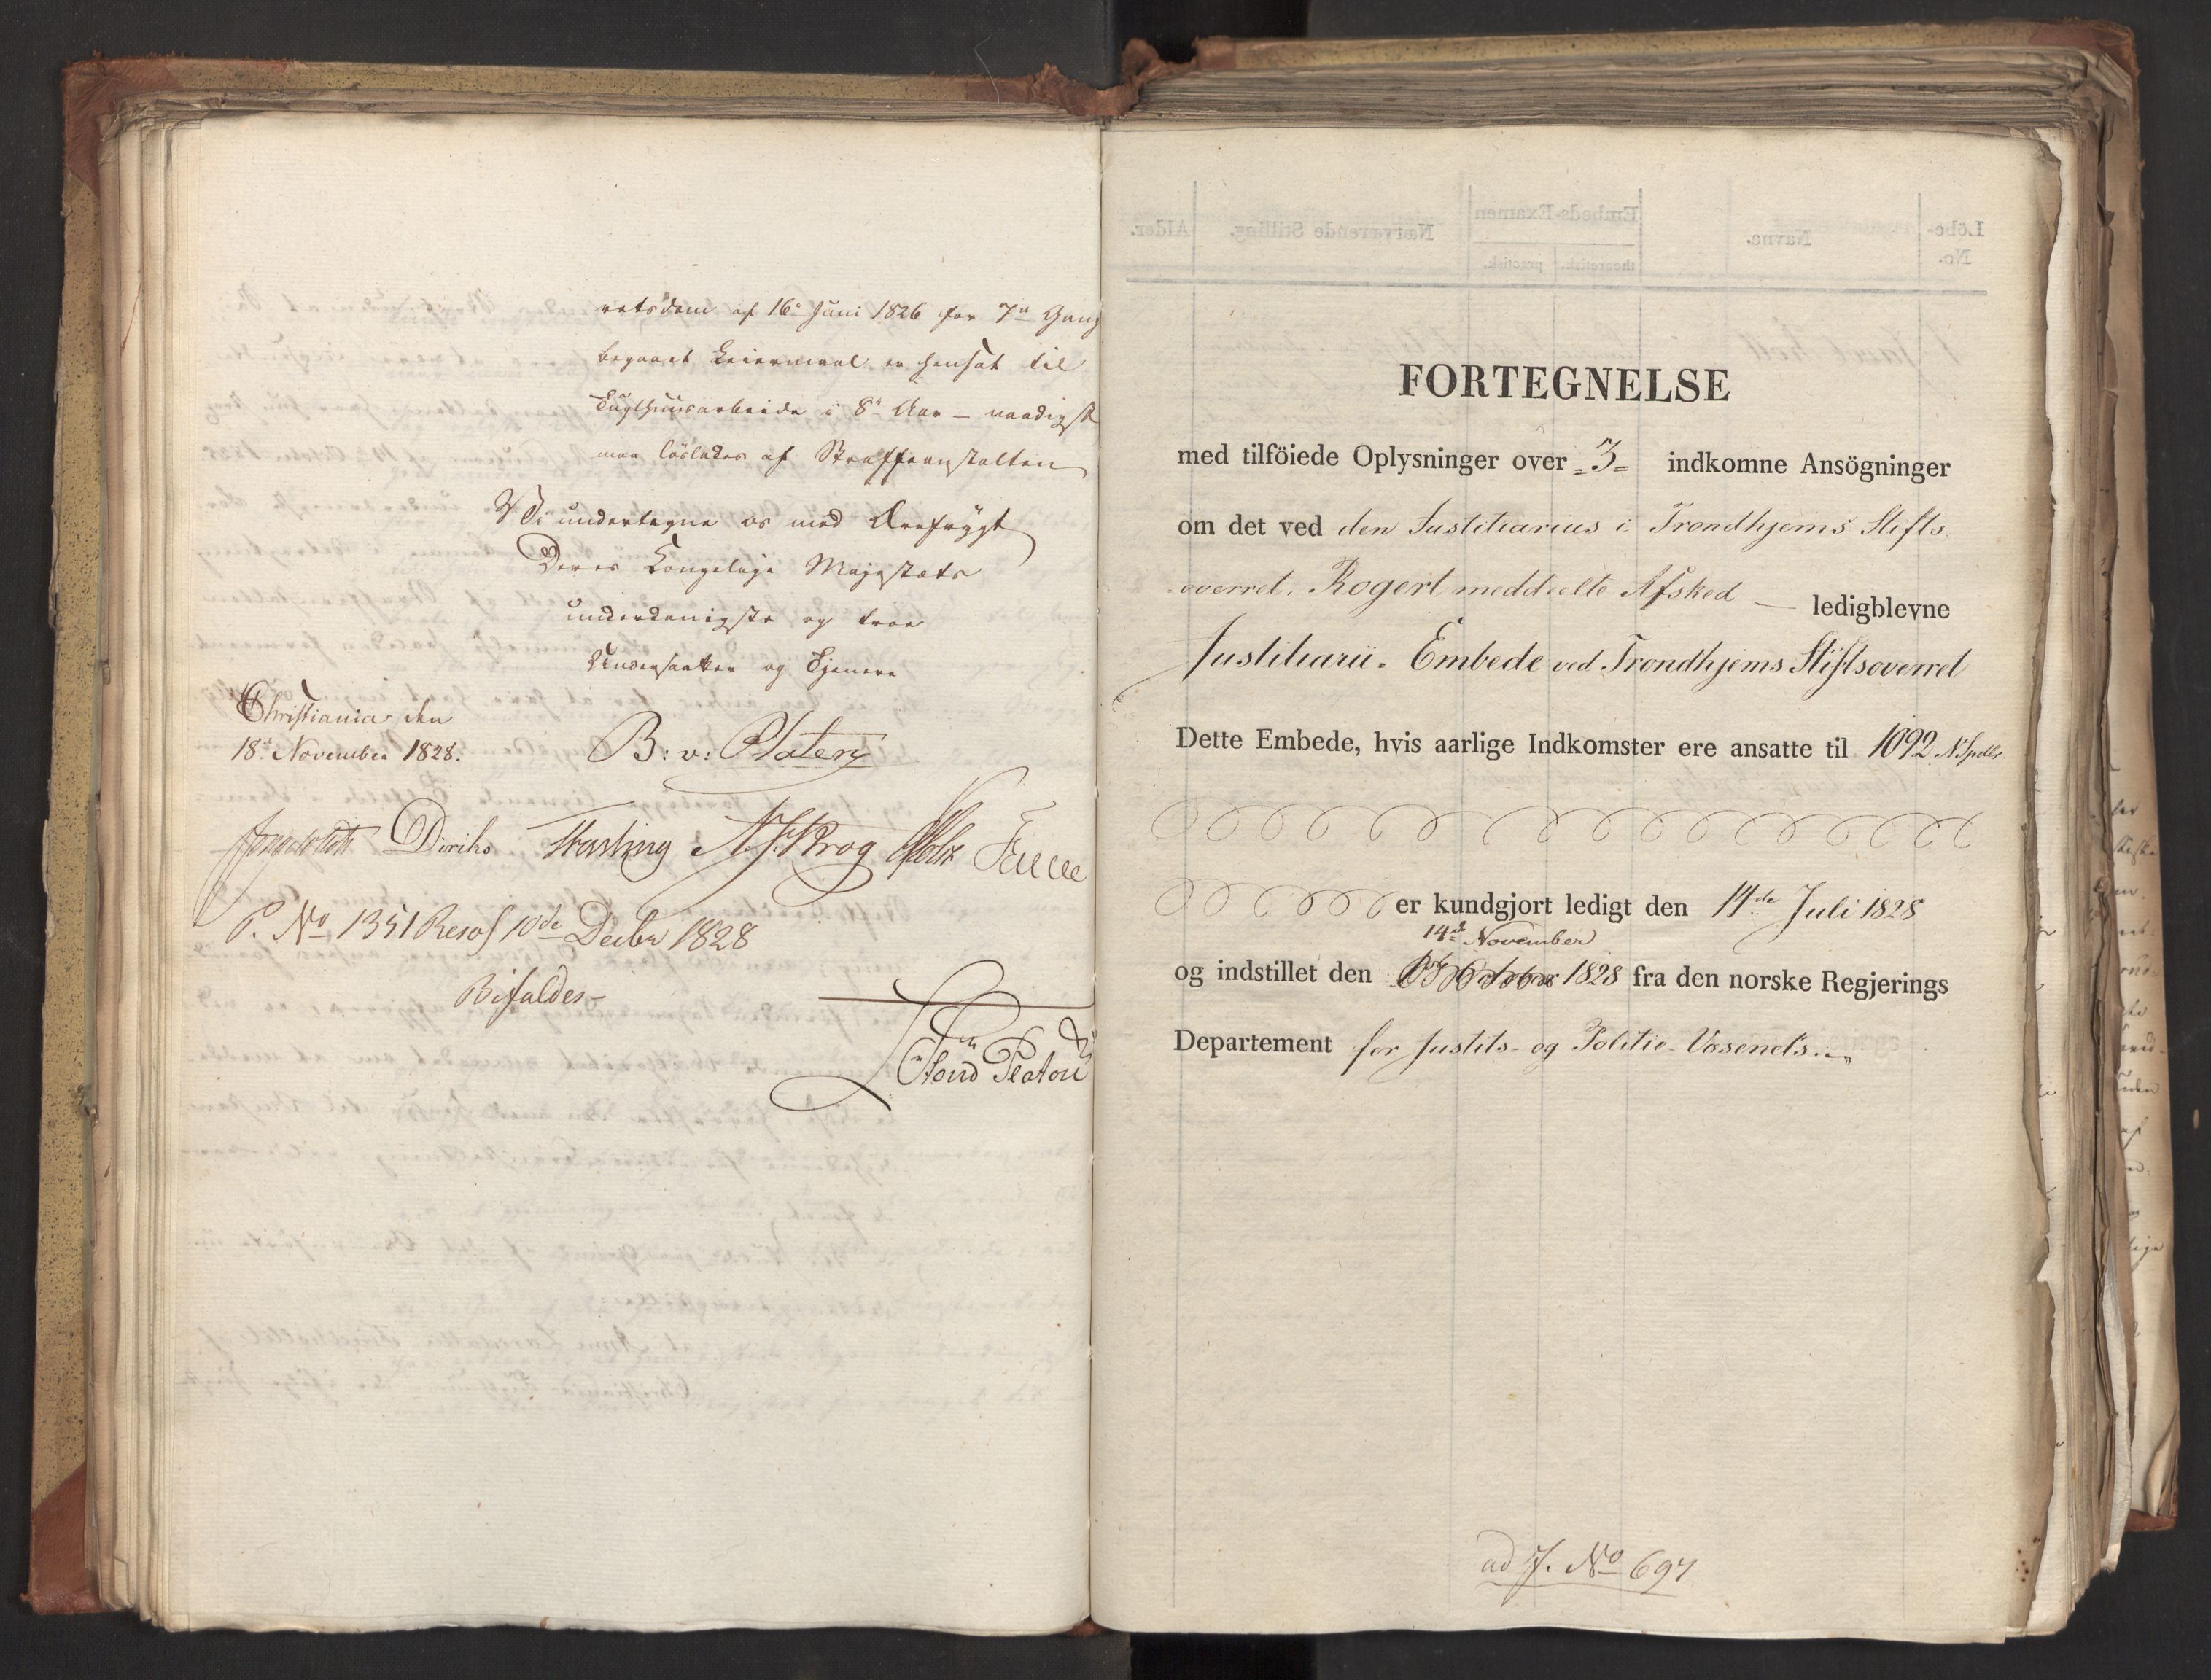 retsdom af 16de Juni 1826 for 7de Gang
begaaet Leiermaal er hensat til
Tugthuusarbeide i 8te Aar – naadigst
maa löslades af Straffeanstalten
Vi undertegne os med Ærefrygt
Deres Kongelige Majestæts
underdanigste og troe
Undersaatter og Tjenere
Christiania den
18de November 1828.
B: v: Platen
Diriks Krog Holst Fasting
P. No 1351 Resol 10de Decbr 1828
Bifaldes
FORTEGNELSE
med tilföiede Oplysninger over = 3 = indkomne Ansögninger
om det ved den Justitiarius i Trondhjems Stifts
overret, Rogert meddeelte Afsked — ledigblevne
Justitiarii-Embede ved Trondhjems Stiftsoverret
Dette Embede, hvis aarlige Indkomster ere ansatte til 1092 N. Spdlr.
er kundgjort ledigt den 14de Juli 1828
14de November
og indstillet den October 1828 fra den norske Regjerings
Departement for Justits- og Politie-Væsenets.
ad J. No 697
Löbe-
No.
Navne.
Embeds-Examen
theoretisk. practisk.
Nærværende Stilling.
Alder.